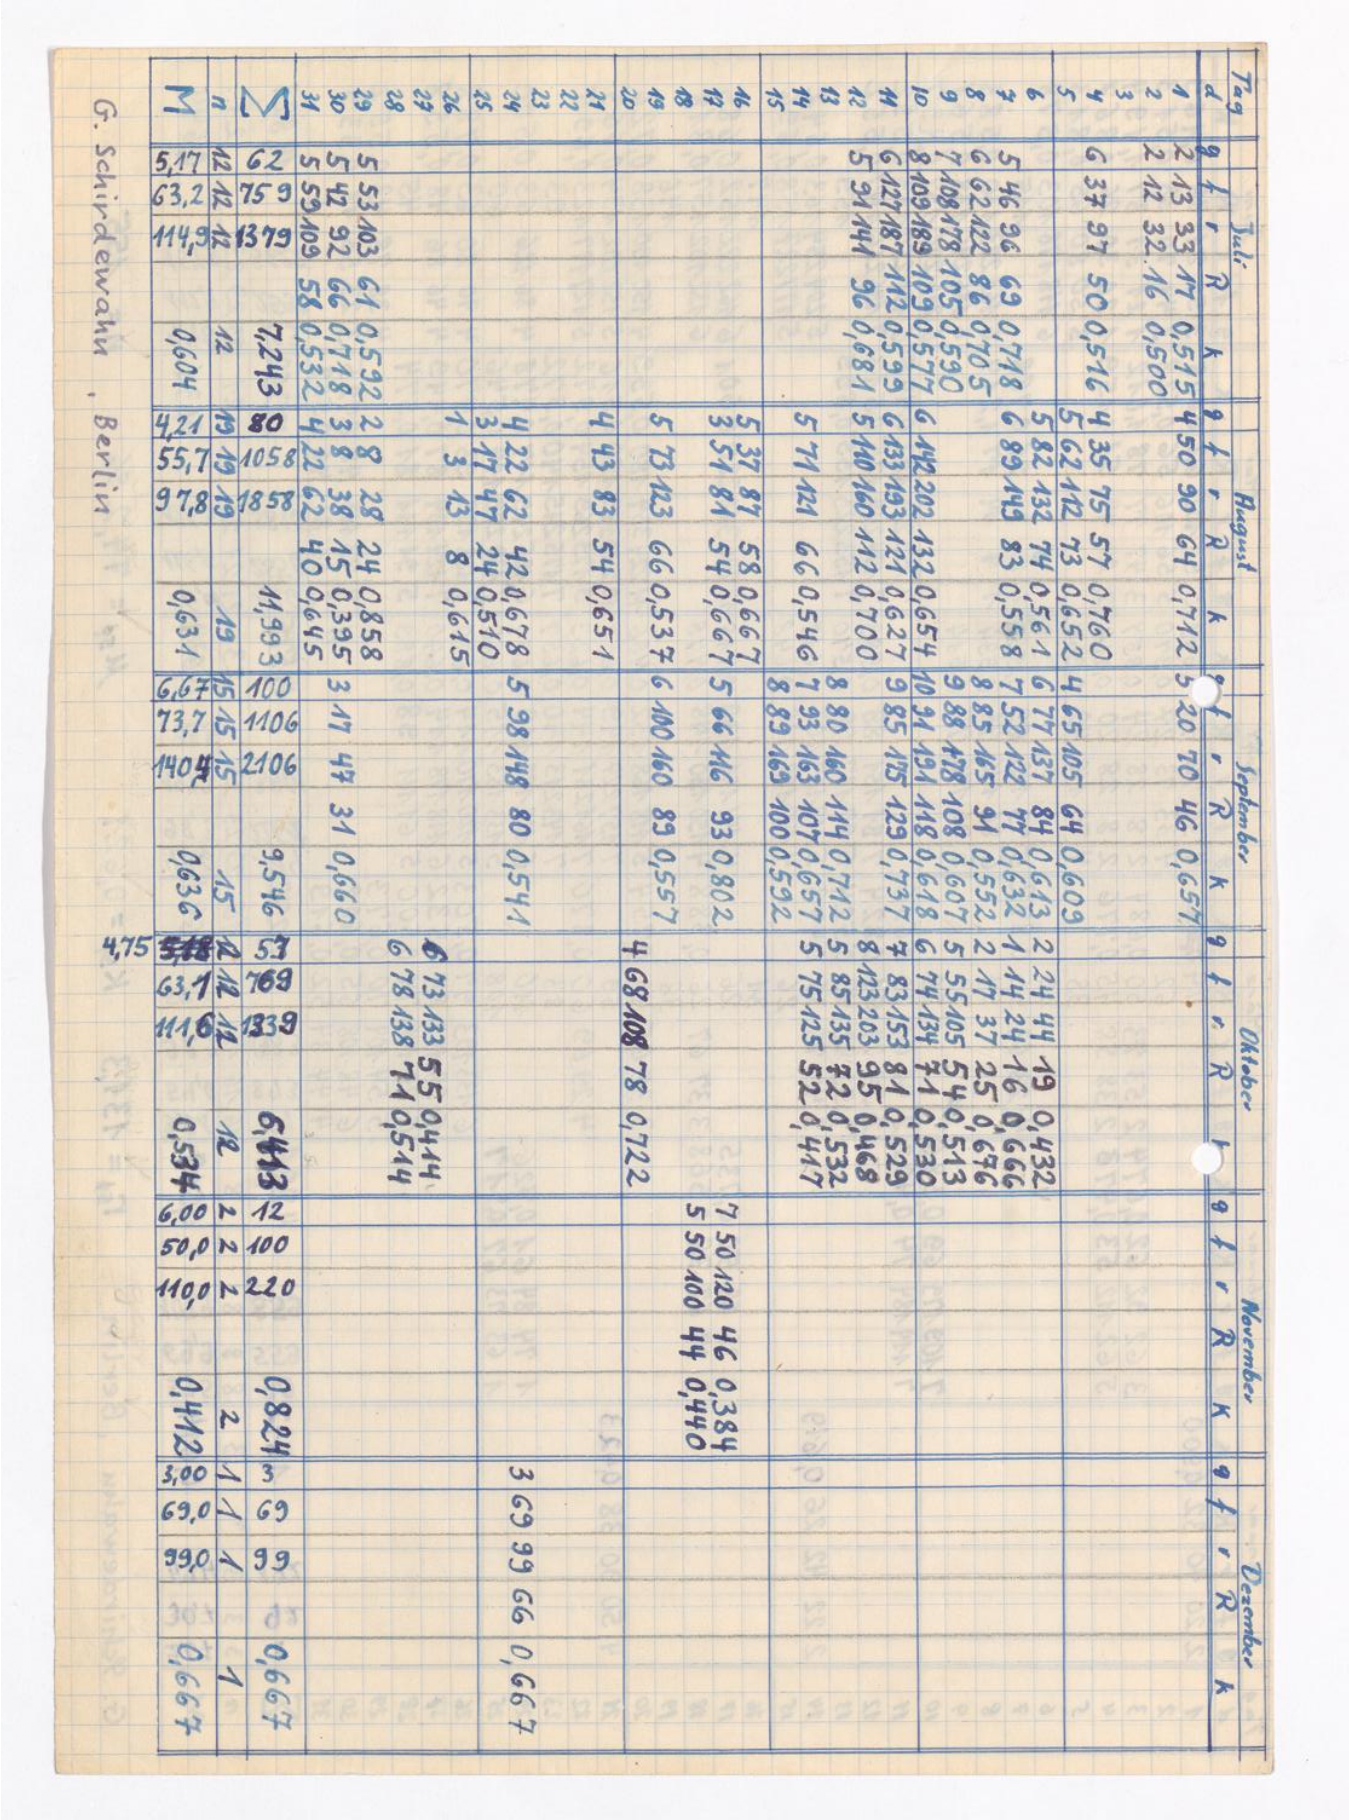 Tag Juli August September Oktober November Dezember
d g f r R k g f r R k g f r R k g f r R k g f r R K g f r R k
1 2 13 33 17 0,515 4 50 90 64 0,712 5 20 70 46 0,657
2 2 12 32 16 0,500
3
4 6 37 97 50 0,516 4 35 75 57 0,760
5 5 62 112 73 0,652 4 65 105 64 0,609
6 5 82 132 74 0,561 6 77 137 84 0,613 2 24 44 19 0,432
7 5 46 96 69 0,718 6 89 149 83 0,558 7 52 122 77 0,632 1 14 24 16 0,666
8 6 62 122 86 0,705 8 85 165 91 0,552 2 17 37 25 0,676
9 7 108 178 105 0,590 9 88 178 108 0,607 5 55 105 54 0,513
10 8 109 189 109 0,577 6 142 202 132 0,654 10 91 191 118 0,618 6 74 134 71 0,530
11 6 127 187 112 0,599 6 133 193 121 0,627 9 85 175 129 0,737 7 83 153 81 0,529
12 5 91 141 96 0,681 5 110 160 112 0,700 8 123 203 95 0,468
13 8 80 160 114 0,712 5 85 135 72 0,532
14 5 71 121 66 0,546 7 93 163 107 0,657 5 75 125 52 0,417
15 8 89 169 100 0,592
16 5 37 87 58 0,667 7 50 120 46 0,384
17 3 51 81 54 0,667 5 66 116 93 0,802
18 5 50 100 44 0,440
19 5 73 123 66 0,537 6 100 160 89 0,557
20 4 68 108 78 0,722
21 4 43 83 54 0,651
22
23
24 4 22 62 42 0,678 5 98 148 80 0,541 3 69 99 66 0,667
25 3 17 47 24 0,510
26 1 3 13 8 0,615
27 6 73 133 55 0,414
28 6 78 138 71 0,514
29 5 53 103 61 0,592 2 8 28 24 0,858
30 5 42 92 66 0,718 3 8 38 15 0,395 3 17 47 31 0,660
31 5 59 109 58 0,532 4 22 62 40 0,645
Σ 62 759 1379 7,243 80 1058 1858 11,993 100 1106 2106 9,546 57 769 1339 6,413 12 100 220 0,824 3 69 99 0,667
n 12 12 12 12 19 19 19 19 15 15 15 15 12 12 12 12 2 2 2 2 1 1 1 1
M 5,17 63,2 114,9 0,604 4,21 55,7 97,8 0,631 6,67 73,7 140,4 0,636 4,75 63,1 111,6 0,534 6,00 50,0 110,0 0,412 3,00 69,0 99,0 0,667
G. Schirdewahn, Berlin